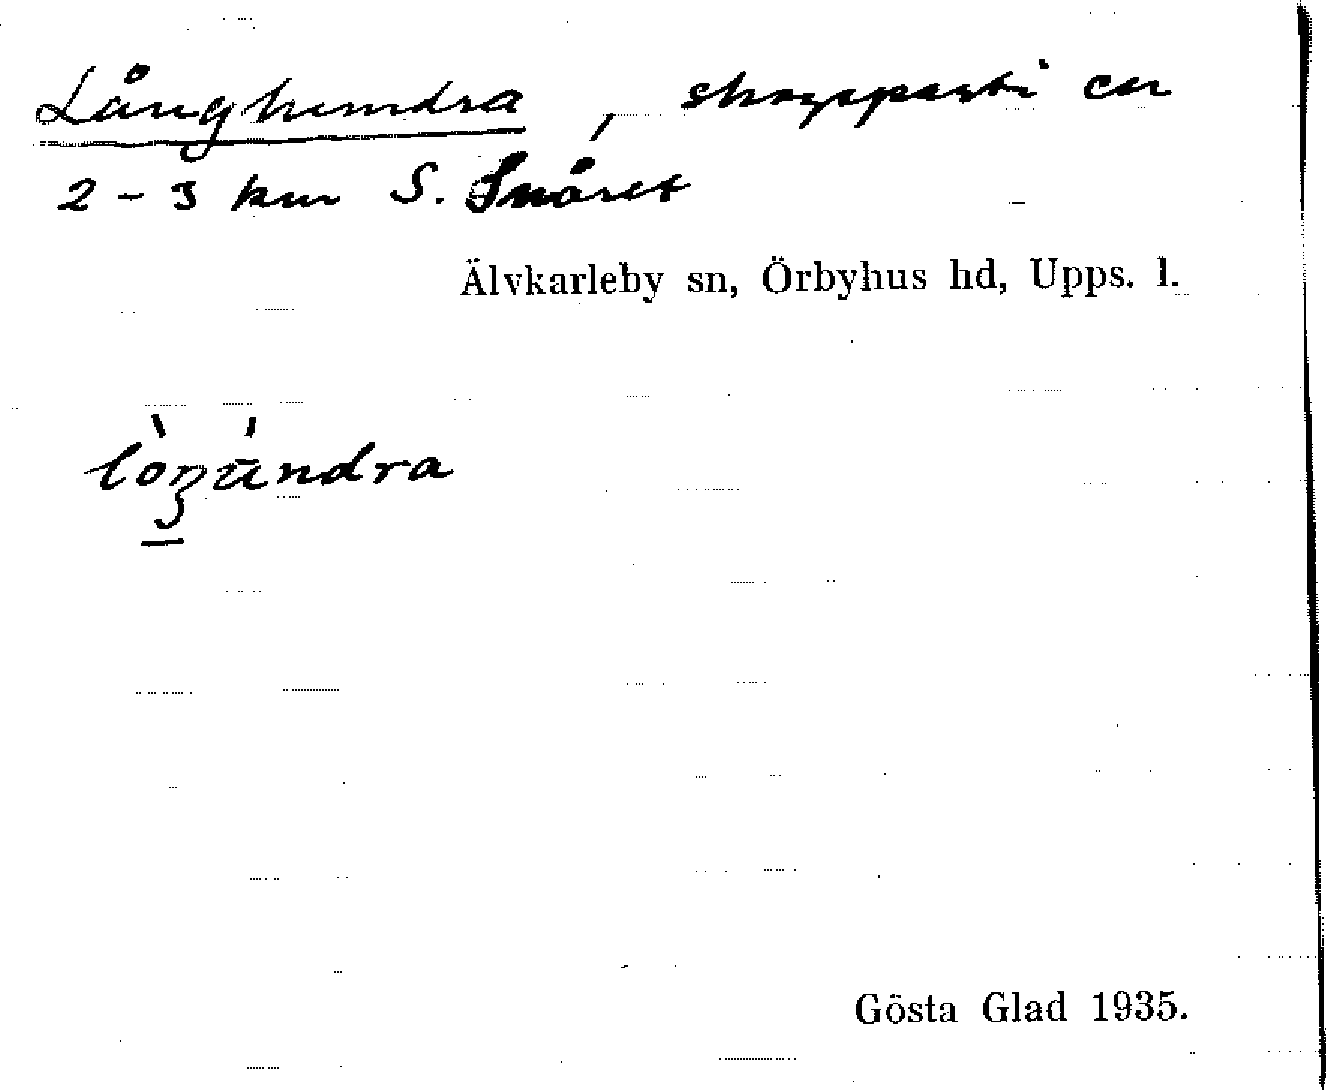 Långhundra, skogsparti ca
2-3 km S. Snåret
Älvkarleby sn, Örbyhus hd, Upps. l.
lòŋúndra
Gösta Glad 1935.